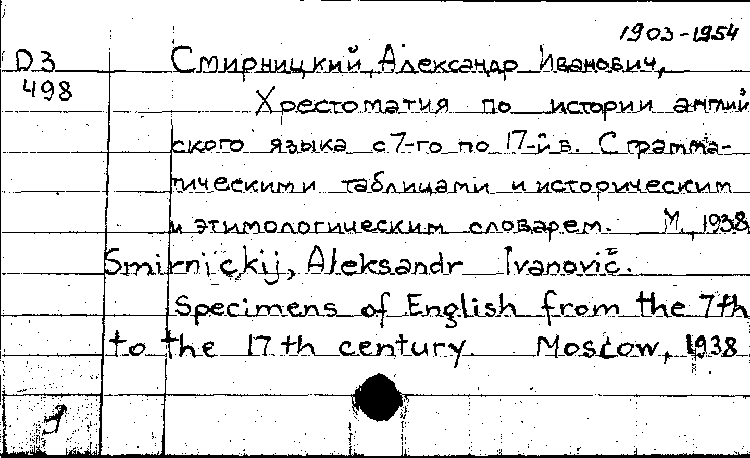 1903-1954
D3 Смирницкий, Александр Иванович,
498
Хрестоматия по истории англий
ского языка с 7-го по 17-й в. С грамма-
тическими таблицами и историческим
и этимологическим словарем. М., 1938
Smirnickij, Aleksandr Ivanovič.
Specimens of English from the 7th
to the 17th century. Moscow, 1938